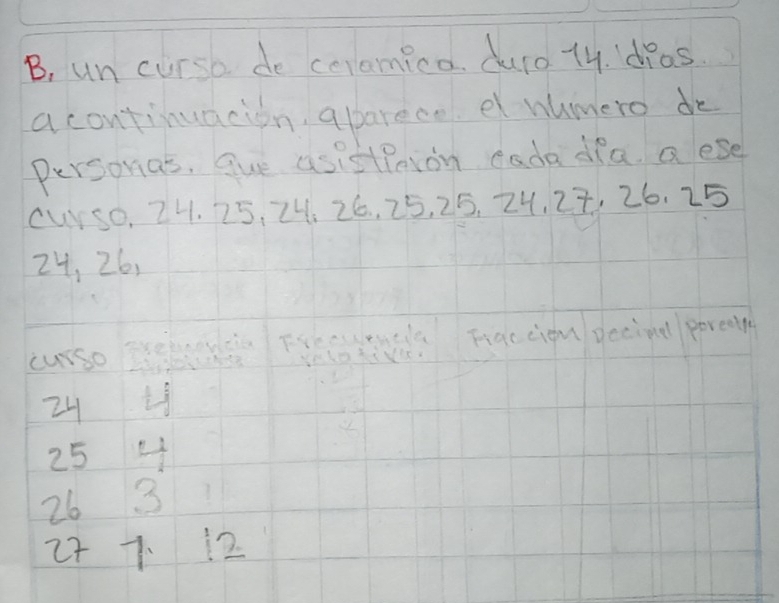 B. un curso de ceramica. duro 14. dias.
a continuación. aparece. el numero de
personas. que asistierón cada dia a ese
curso. 24. 25, 24, 26, 25, 25, 24, 27, 26. 25
24, 26,
curso Frecuencia absoluta Frecuencia relativa. Fraccion Decimal
24 4
25 4
26 3
27 1. 12